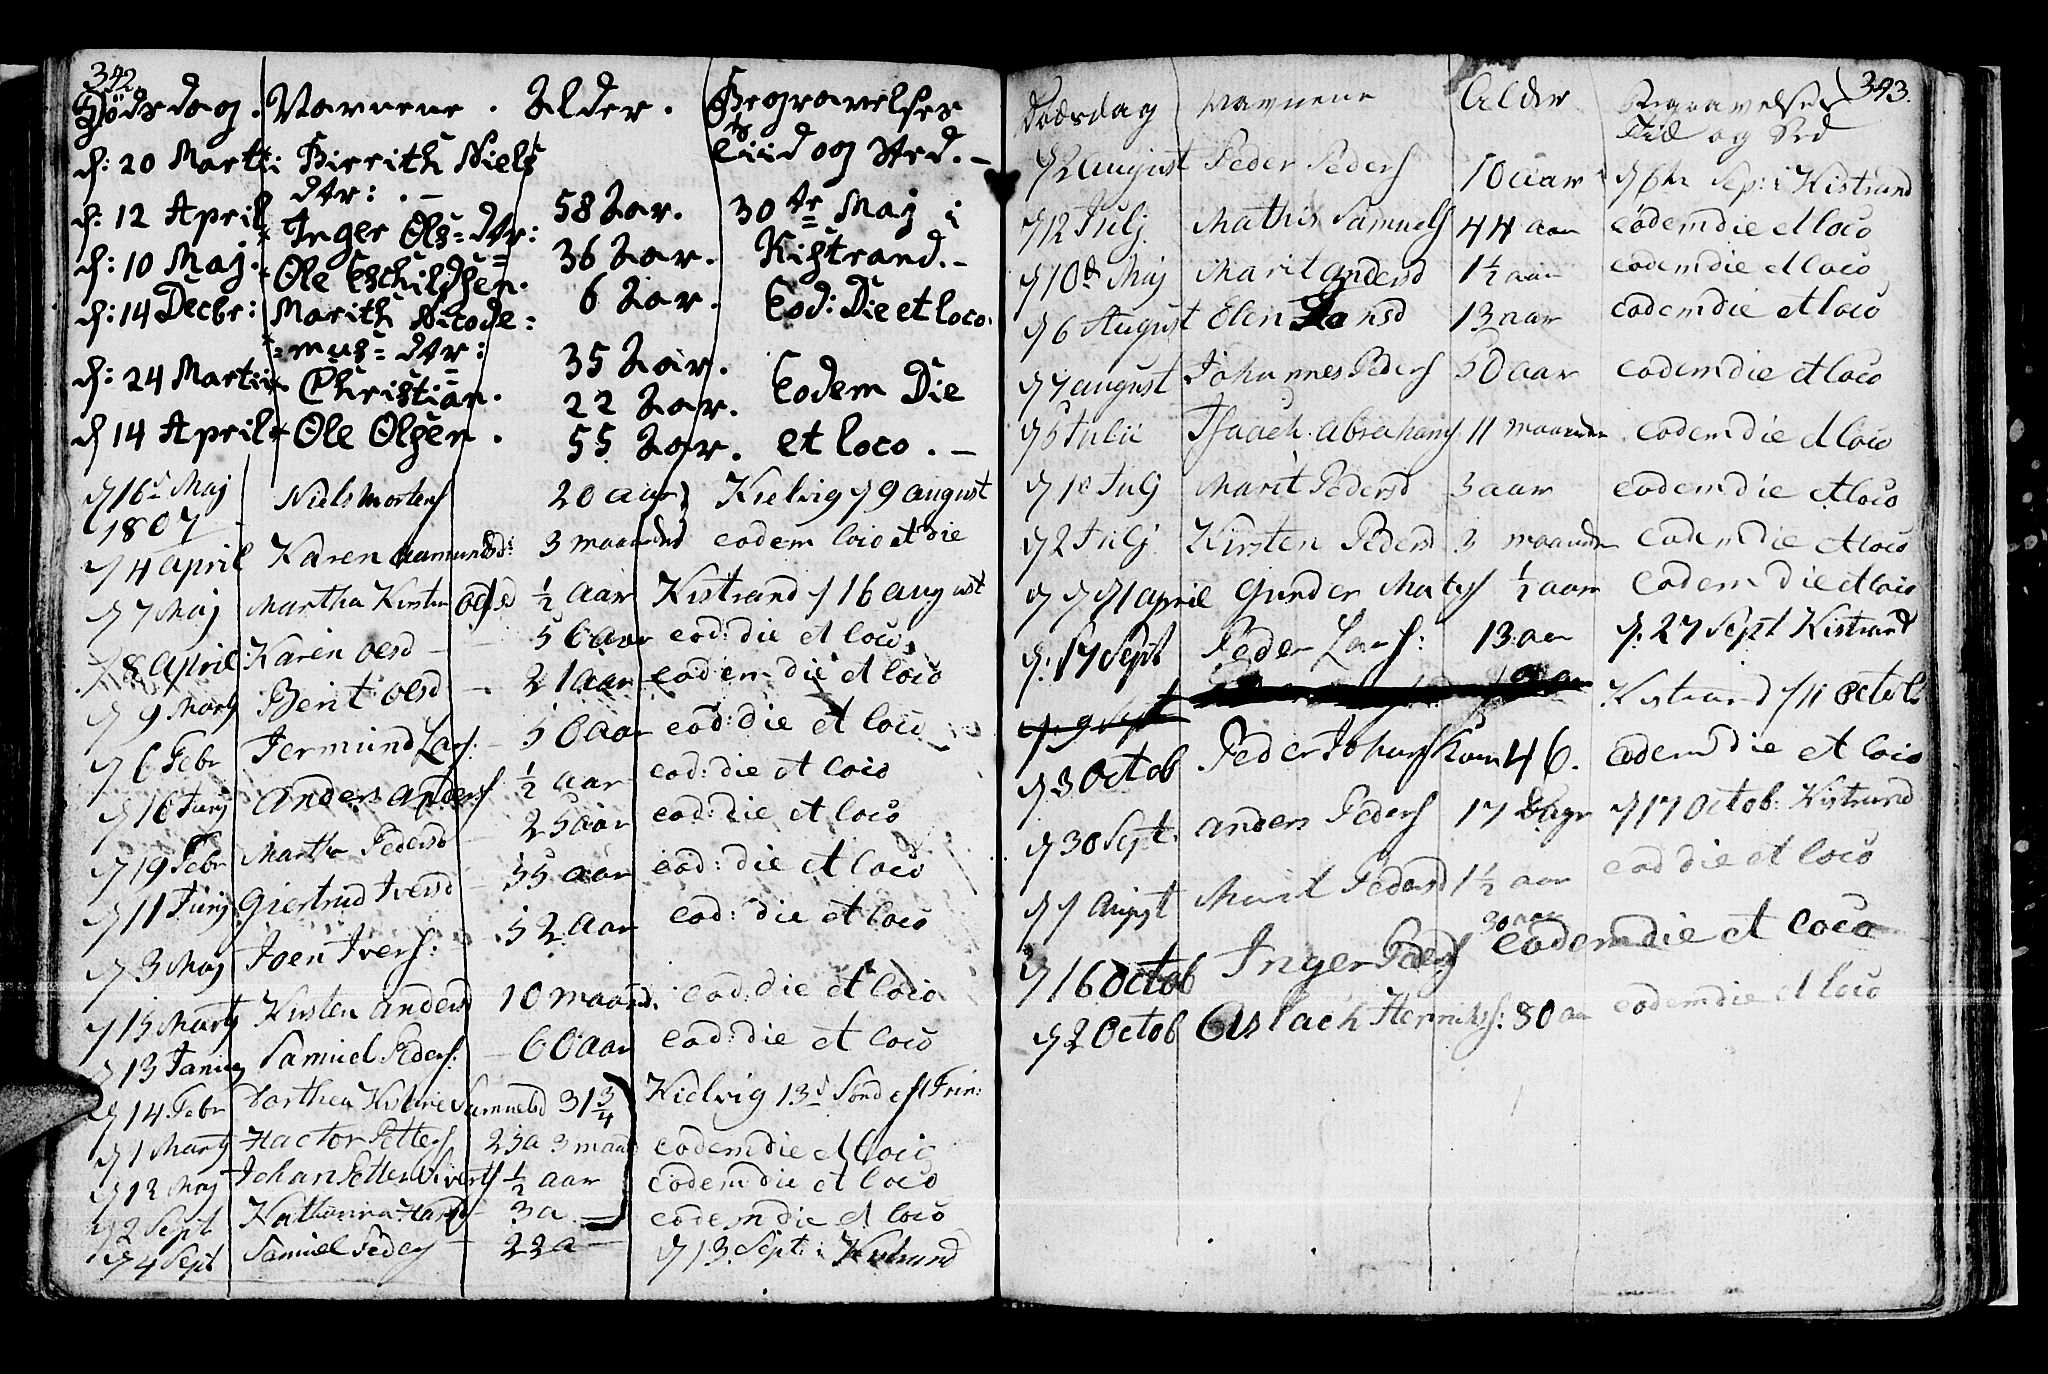 342
Dödsdag. Navnene. Alder. Begravelses
Tiid og Sted.
d: 20 Martii Birrith Niels
dtr: 58 Aar. 30te Maj i
d: 12 April Inger Ols=dtr: 36 Aar. Kistrand.
d: 10 Maj. Ole Eschildsen. 6 Aar. Eod: Die et loco.
d: 14 Decbr: Marith Nicode=
=mus=dtr: 35 Aar.
d: 24 Martii Christian. 22 Aar. Eodem Die
d 14 April Ole Olsen. 55 Aar. et loco.
d 16de Maj Niels Mortens 20 aar Kielvig d 9 august
1807
d 4 april Karen Aamundsd: 3 maaneder eodem loco et die
d 7 Maj Martha Kirsten Olsd ½ aar Kistrand d 16 august
d 8 april Karen Olsd 56 aar eod: die et loco
d 9 Marty Berit Olsd 21 aar eodem die et loco
d 6 Febr Jermund Lars: 50 aar eod: die et loco
d 16 Junij Anders Anders ½ aar eod: die et loco
d 19 Febr Martha Pedersd 25 aar eod: die et loco
d 11 Junij Giertrud Iversd 35 aar eod: die et loco
d 3 Maj Joen Ivers: 52 aar eod: die et loco
d 15 Marty Kirsten Andersd 10 maand. eod: die et loco
d 13 Januarij Samuel Peders: 60 aar eod: die et loco
d 14 Febr Dorthea Kistine Samuelsd 31¾ Kielvig 13de Sönd eft Trin:
d 1 Marty Hactor Petters 25a 3 maand eodem die et loco
d 12 Maj Johan Petter Siverts ½ aar eodem die et loco
d 2 Sept Katharina Hansd 3a eodem die et loco
d 4 Sept Samuel Peders 22a d 13 Sept: i Kistrand
343.
Dödsdag Navnene Alder Begravelses
Tid og Sted
d 2 august Peder Peders 10 aar d 6te Sep: i Kistrand
d 12 Julj Mathis Samuels 44 aar eodem die et loco
d 10de Maj Marit Andersd 1½ aar eodem die et loco
d 6 August Elen Hansd 13 aar eodem die et loco
d 7 august Johannes Peders 50 aar eodem die et loco
d 6 Julii Isaach Abrahams 11 maaneder eodem die et loco
d 1e Julj Marit Pedersd 3 aar eodem die et loco
d 2 Julj Kirsten Pedersd 3 maaneder eodem die et loco
april Gunder Mats ½ aar eodem die et loco
d: 17 Sept Peder Lars: 13 aar d: 27 Sept Kistrand
d: 9 Sept Kistrand d 11 Octob
d 3 Octob Peder Johans 46. eodem die et loco
d 30 Sept: Anders Peders 17 Dage d 17 Octob: Kistrand
d 7 August Marit Pedersd 1½ aar eod die et loco
d 16 Octob Inger Peders 30 aar eodem die et loco
d 2 Octob Aslach Henriks: 80 aar eodem die et loco